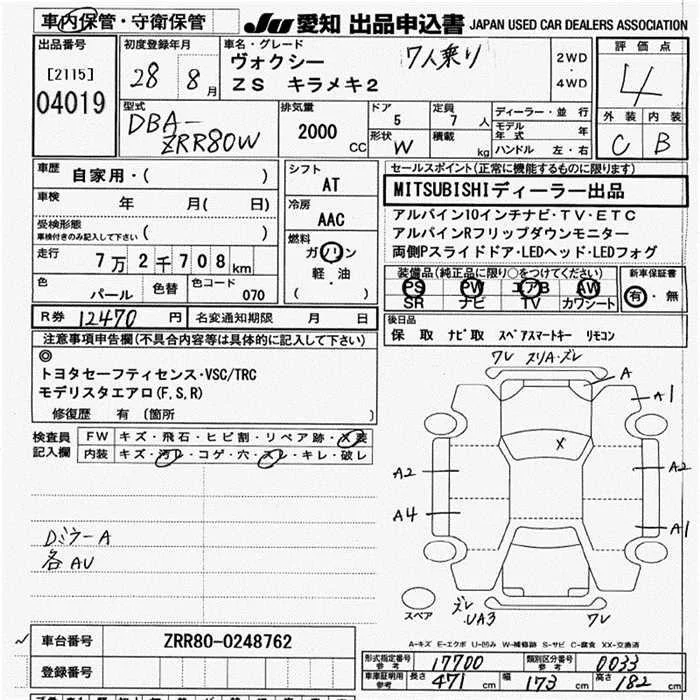 車内保管・守衛保管
JU 愛知 出品申込書 JAPAN USED CAR DEALERS ASSOCIATION
出品番号
[2115]
04019
初度登録年月
28年 8月
車名・グレード
ヴォクシー 7人乗り
ZS キラメキ2
2WD
・
4WD
評価点
4
外装 内装
C B
型式
DBA-
ZRR80W
排気量
2000 CC
ドア
5
形状
W
定員
7人
積載
kg
ディーラー・並行
モデル年式 年
ハンドル 左・右
車歴
自家用・( )
車検
年 月( 日)
受検形態
車検付きのみ記入して下さい ( )
走行
7万2千708km
色
パール
色替
色コード
070
シフト
AT
冷房
AAC
燃料
ガソリン
軽・油
( )
セールスポイント(正常に機能するものに限ります)
MITSUBISHIディーラー出品
アルパイン10インチナビ・TV・ETC
アルパインRフリップダウンモニター
両側Pスライドドア・LEDヘッド・LEDフォグ
装備品(純正品に限り○をつけてください)
PS PW エアB AW
SR ナビ TV カワシート
新車保証書
有・無
R券 12470円 名変通知期限 月 日
後日品
保 取 ナビ取 スペアスマートキー リモコン
注意事項申告欄(不具合内容等は具体的に記入して下さい)
◎
トヨタセーフティセンス・VSC/TRC
モデリスタエアロ(F,S,R)
修復歴 有 〔箇所 〕
検査員
記入欄
FW キズ・飛石・ヒビ割・リペア跡・X要
内装 キズ・汚レ・コゲ・穴・スレ・キレ・破レ
Dミラー A
各AU
ワレ スリA・ズレ
A
A1
X
A2
A2
A4
A1
スペア
ズレ
UA3
ワレ
A-キズ E-エクボ U-凹み W-補修跡 S-サビ C-腐食 XX-交換済
車台番号 ZRR80-0248762
登録番号
形式指定番号 参考 17700 類別区分番号 参考 0033
車庫証明用 参考 長さ 471cm 幅 173cm 高さ 182cm